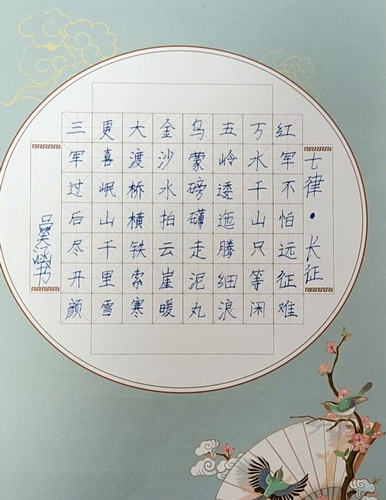 七律·长征
红军不怕远征难
万水千山只等闲
五岭逶迤腾细浪
乌蒙磅礴走泥丸
金沙水拍云崖暖
大渡桥横铁索寒
更喜岷山千里雪
三军过后尽开颜
书